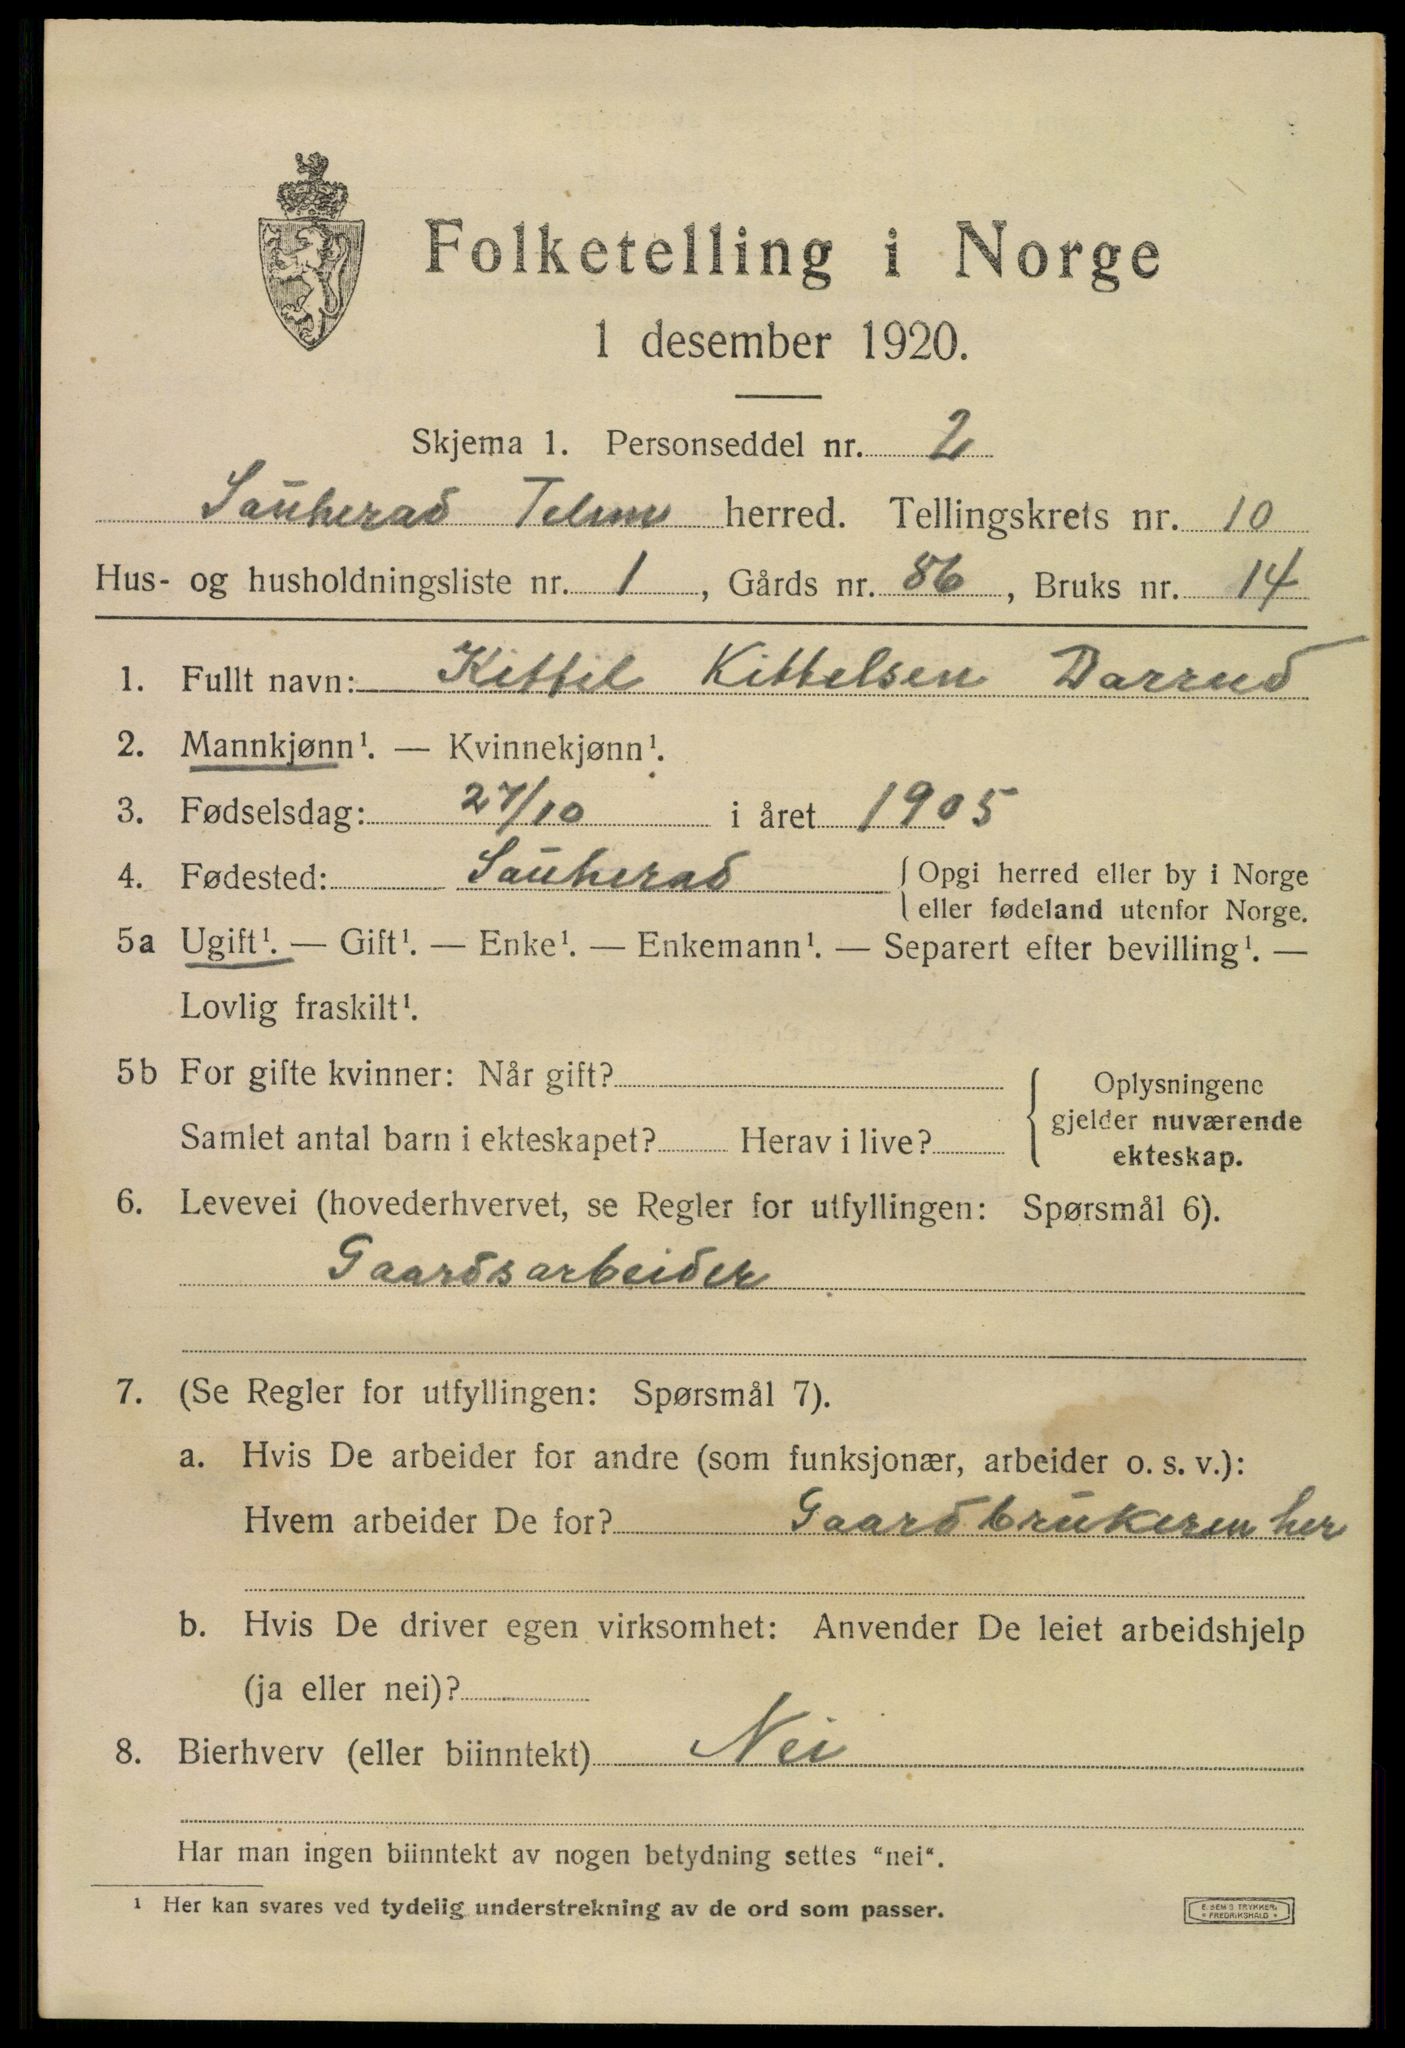 Folketelling i Norge
1 desember 1920.
Skjema 1. Personseddel nr. 2
Sauherad Telem herred. Tellingskrets nr. 10
Hus- og husholdningsliste nr. 1, Gårds nr. 86, Bruks nr. 14
1. Fullt navn: Kittil Kittelsen Darrud
2. Mannkjønn¹. — Kvinnekjønn¹.
3. Fødselsdag: 27/10 i året 1905
4. Fødested: Sauherad { Opgi herred eller by i Norge
eller fødeland utenfor Norge.
5a Ugift¹. — Gift¹. — Enke¹. — Enkemann¹. — Separert efter bevilling¹. —
Lovlig fraskilt¹.
5b For gifte kvinner: Når gift?
Samlet antal barn i ekteskapet? Herav i live?
{ Oplysningene
gjelder nuværende
ekteskap.
6. Levevei (hovederhvervet, se Regler for utfyllingen: Spørsmål 6).
Gaardsarbeider
7. (Se Regler for utfyllingen: Spørsmål 7).
a. Hvis De arbeider for andre (som funksjonær, arbeider o. s. v.):
Hvem arbeider De for? Gaardbrukeren her
b. Hvis De driver egen virksomhet: Anvender De leiet arbeidshjelp
(ja eller nei)?
8. Bierhverv (eller biinntekt) Nei
Har man ingen biinntekt av nogen betydning settes "nei".
¹ Her kan svares ved tydelig understrekning av de ord som passer.
E. SEM'S TRYKKERI
* FREDRIKSHALD *